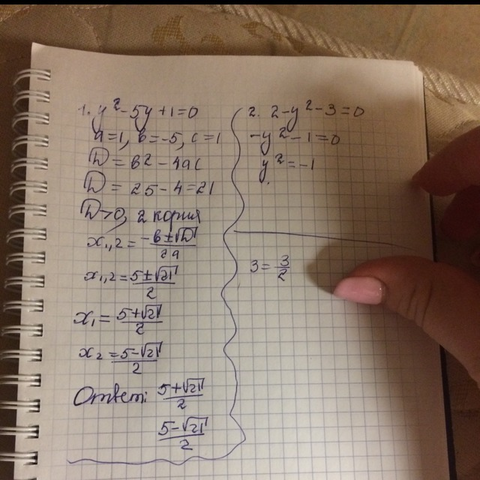 1. y² - 5y + 1 = 0
a=1, b=-5, c=1
D = b² - 4ac
D = 25 - 4 = 21
D>0, 2 корня
x₁,₂ = -b±√D / 2a
x₁,₂ = 5±√21 / 2
x₁ = 5+√21 / 2
x₂ = 5-√21 / 2
Ответ: 5+√21 / 2
5-√21 / 2
2. 2-y²-3=0
-y²-1=0
y²=-1
3 = 3/2